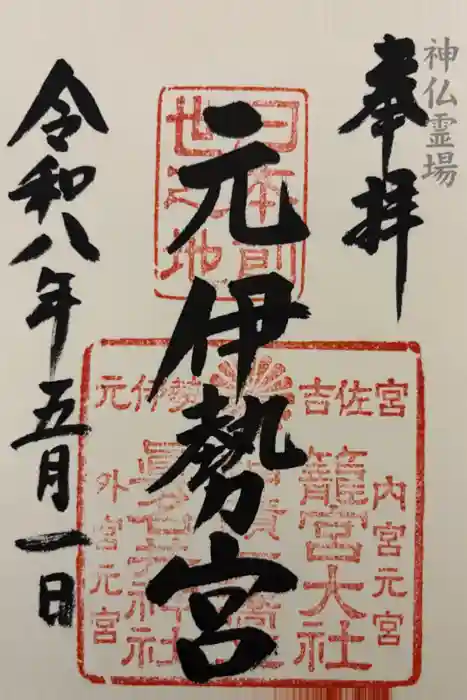 神仏霊場
奉拝
元伊勢宮
令和八年五月一日
日本前
世之地
吉佐宮
元伊勢
内宮元宮
籠宮大社
外宮元宮